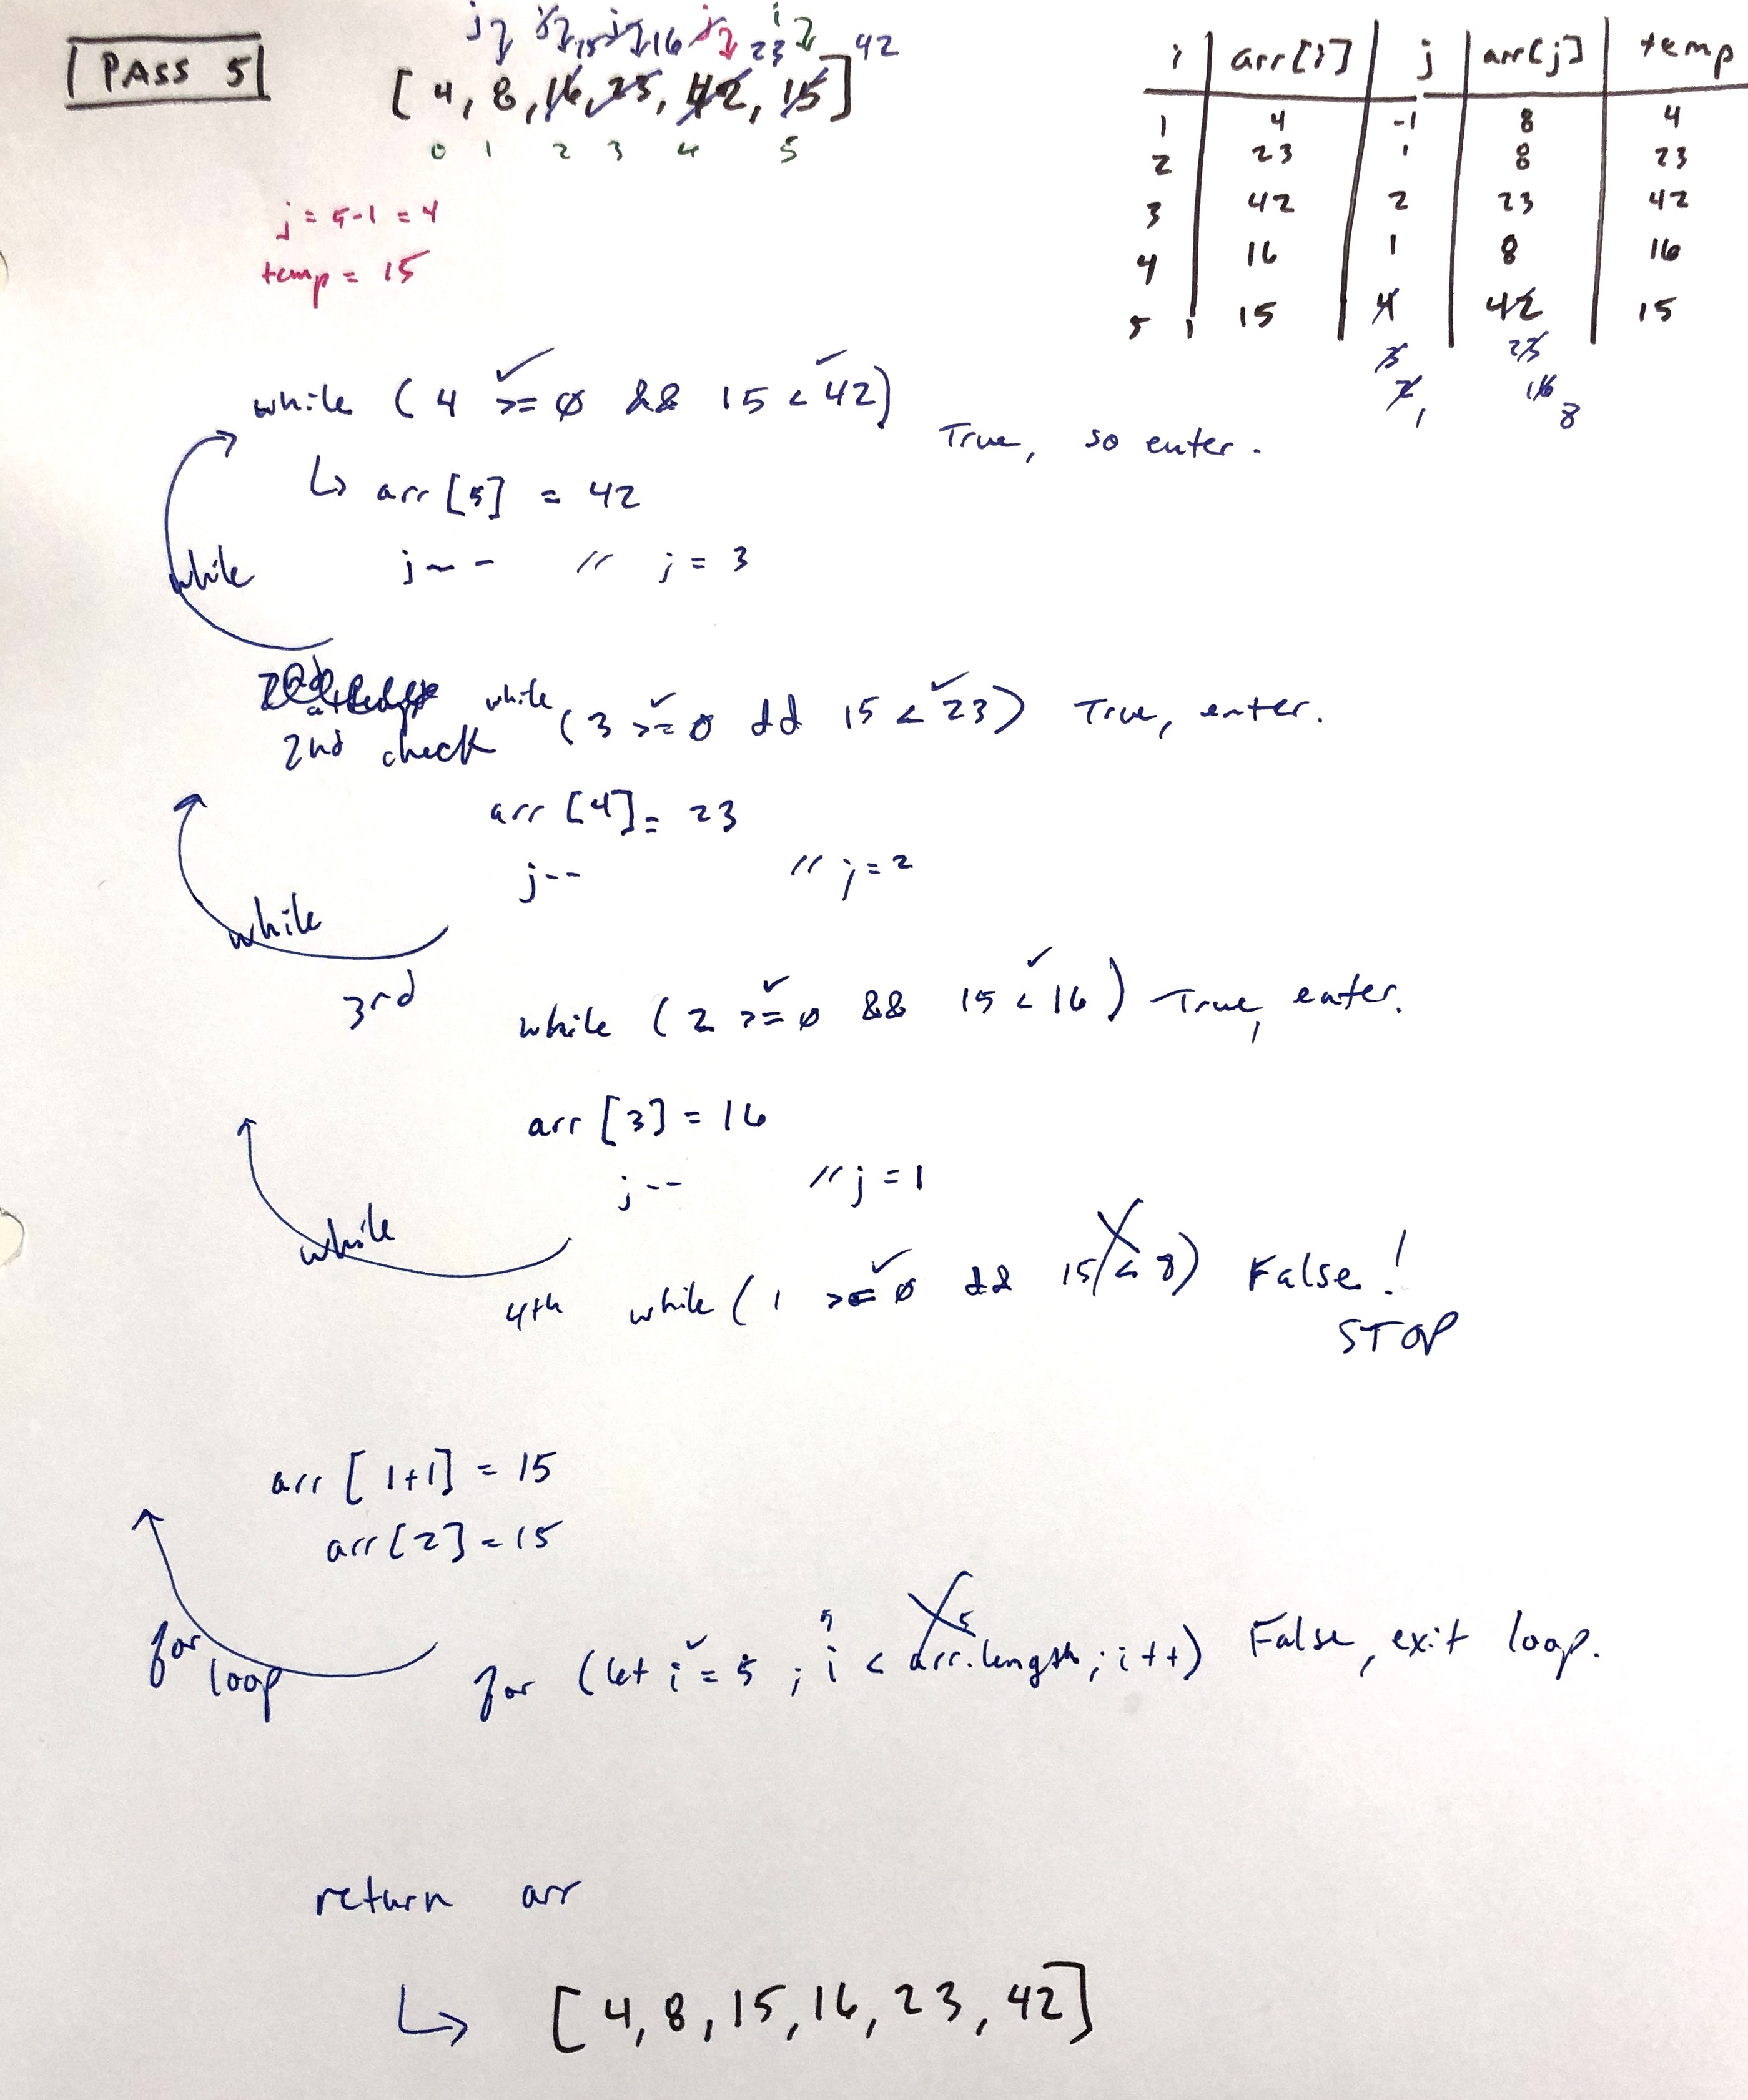 PASS 5
j j 15 j 16 j 23 i 42
[ 4, 8, 16, 23, 42, 15 ]
0 1 2 3 4 5
j = 5-1 = 4
temp = 15
i arr[i] j arr[j] temp
1 4 -1 8 4
2 23 1 8 23
3 42 2 23 42
4 16 1 8 16
5 15 4 42 15
3 23
2 16
1 8
while ( 4 >= 0 && 15 < 42)
True, so enter.
↳ arr [5] = 42
while j-- // j = 3
2nd check while (3 >= 0 && 15 < 23) True, enter.
arr [4] = 23
j-- // j = 2
while
3rd while ( 2 >= 0 && 15 < 16 ) True, enter.
arr [3] = 16
j-- // j = 1
while
4th while ( 1 >= 0 && 15 < 8) False!
STOP
arr [ 1+1] = 15
arr [2] = 15
for loop
5 5
for (let i = 5 ; i < arr.length; i++) False, exit loop.
return arr
↳ [ 4, 8, 15, 16, 23, 42]